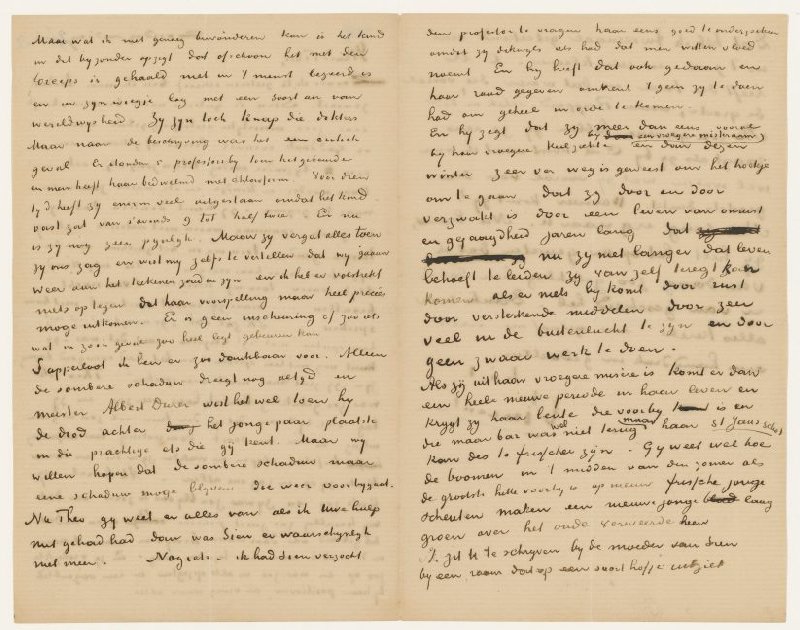 Maar wat ik niet genoeg bewonderen kan is het kind
in dit byzonder opzigt dat ofschoon het met den
forceps is gehaald niet in 't minst bezeerd is
en in zyn wiegje lag met een soort air van
wereldwysheid. Zy zyn toch knap die dokters
Maar naar de beschryving was het een critiek
geval. Er stonden 5 professors by toen het gebeurde
en men heeft haar bedwelmd met chloroform. Voor dien
tyd heeft zy enorm veel uitgestaan omdat het kind
vast zat van s'avonds 9 tot half twee. En nu
is zy nog zeer pynlyk. Maar zy vergat alles toen
zy ons zag en wist my zelfs te vertellen dat wy gaauw
weer aan het teekenen zouden zyn en ik heb er volstrekt
niets op tegen dat haar voorspelling maar heel precies
moge uitkomen. Er is geen inscheuring of zoo iets
wat in zoo'n geval zoo heel ligt gebeuren kan
Sapperloot ik ben er zoo dankbaar voor. Alleen
de sombere schaduw dreigt nog altyd en
meester Albert Durer wist het wel toen hy
de dood achter het jonge paar plaatste
in die prachtige ets die gy kent. Maar wy
willen hopen dat de sombere schaduw maar
eene schaduw moge blyven die weer voorbygaat.
Nu Theo gy weet er alles van als ik Uwe hulp
niet gehad had dan was Sien er waarschynlyk
niet meer. Nog iets - ik had Sien verzocht
den professor te vragen haar eens goed te onderzoeken
omdat zy dikwyls iets had dat men witten vloed
noemt. En hy heeft dat ook gedaan en
haar raad gegeven omtrent 't geen zy te doen
had om geheel in orde te komen.
En hy zegt dat zy meer dan eens vooral
by haar vroegere keelziekte by een vroegere miskraam & en dan dezen
winter zeer ver weg is geweest om het hoekje
om te gaan dat zy door en door
verzwakt is door een leven van onrust
en gejaagdheid jaren lang dat
nu zy niet langer dat leven
behoeft te leiden zy van zelf teregt kan
komen als er niets by komt door rust
door versterkende middelen door zeer
veel in de buitenlucht te zyn en door
geen zwaar werk te doen.
Als zij uit haar vroegere misere is komt er dan
een heele nieuwe periode in haar leven en
krygt zy haar lente die voorby is en
die maar bar was wel niet terug maar haar St Jans schot
kan des te frisscher zijn. Gy weet wel hoe
de boomen in 't midden van den zomer als
de grootste hitte voorby is op nieuw frissche jonge
scheuten maken een nieuwe jonge laag
groen over het oude verweerde heen
I. zit U te schryven by de moeder van Sien
by een raam dat op een soort hofje uitziet